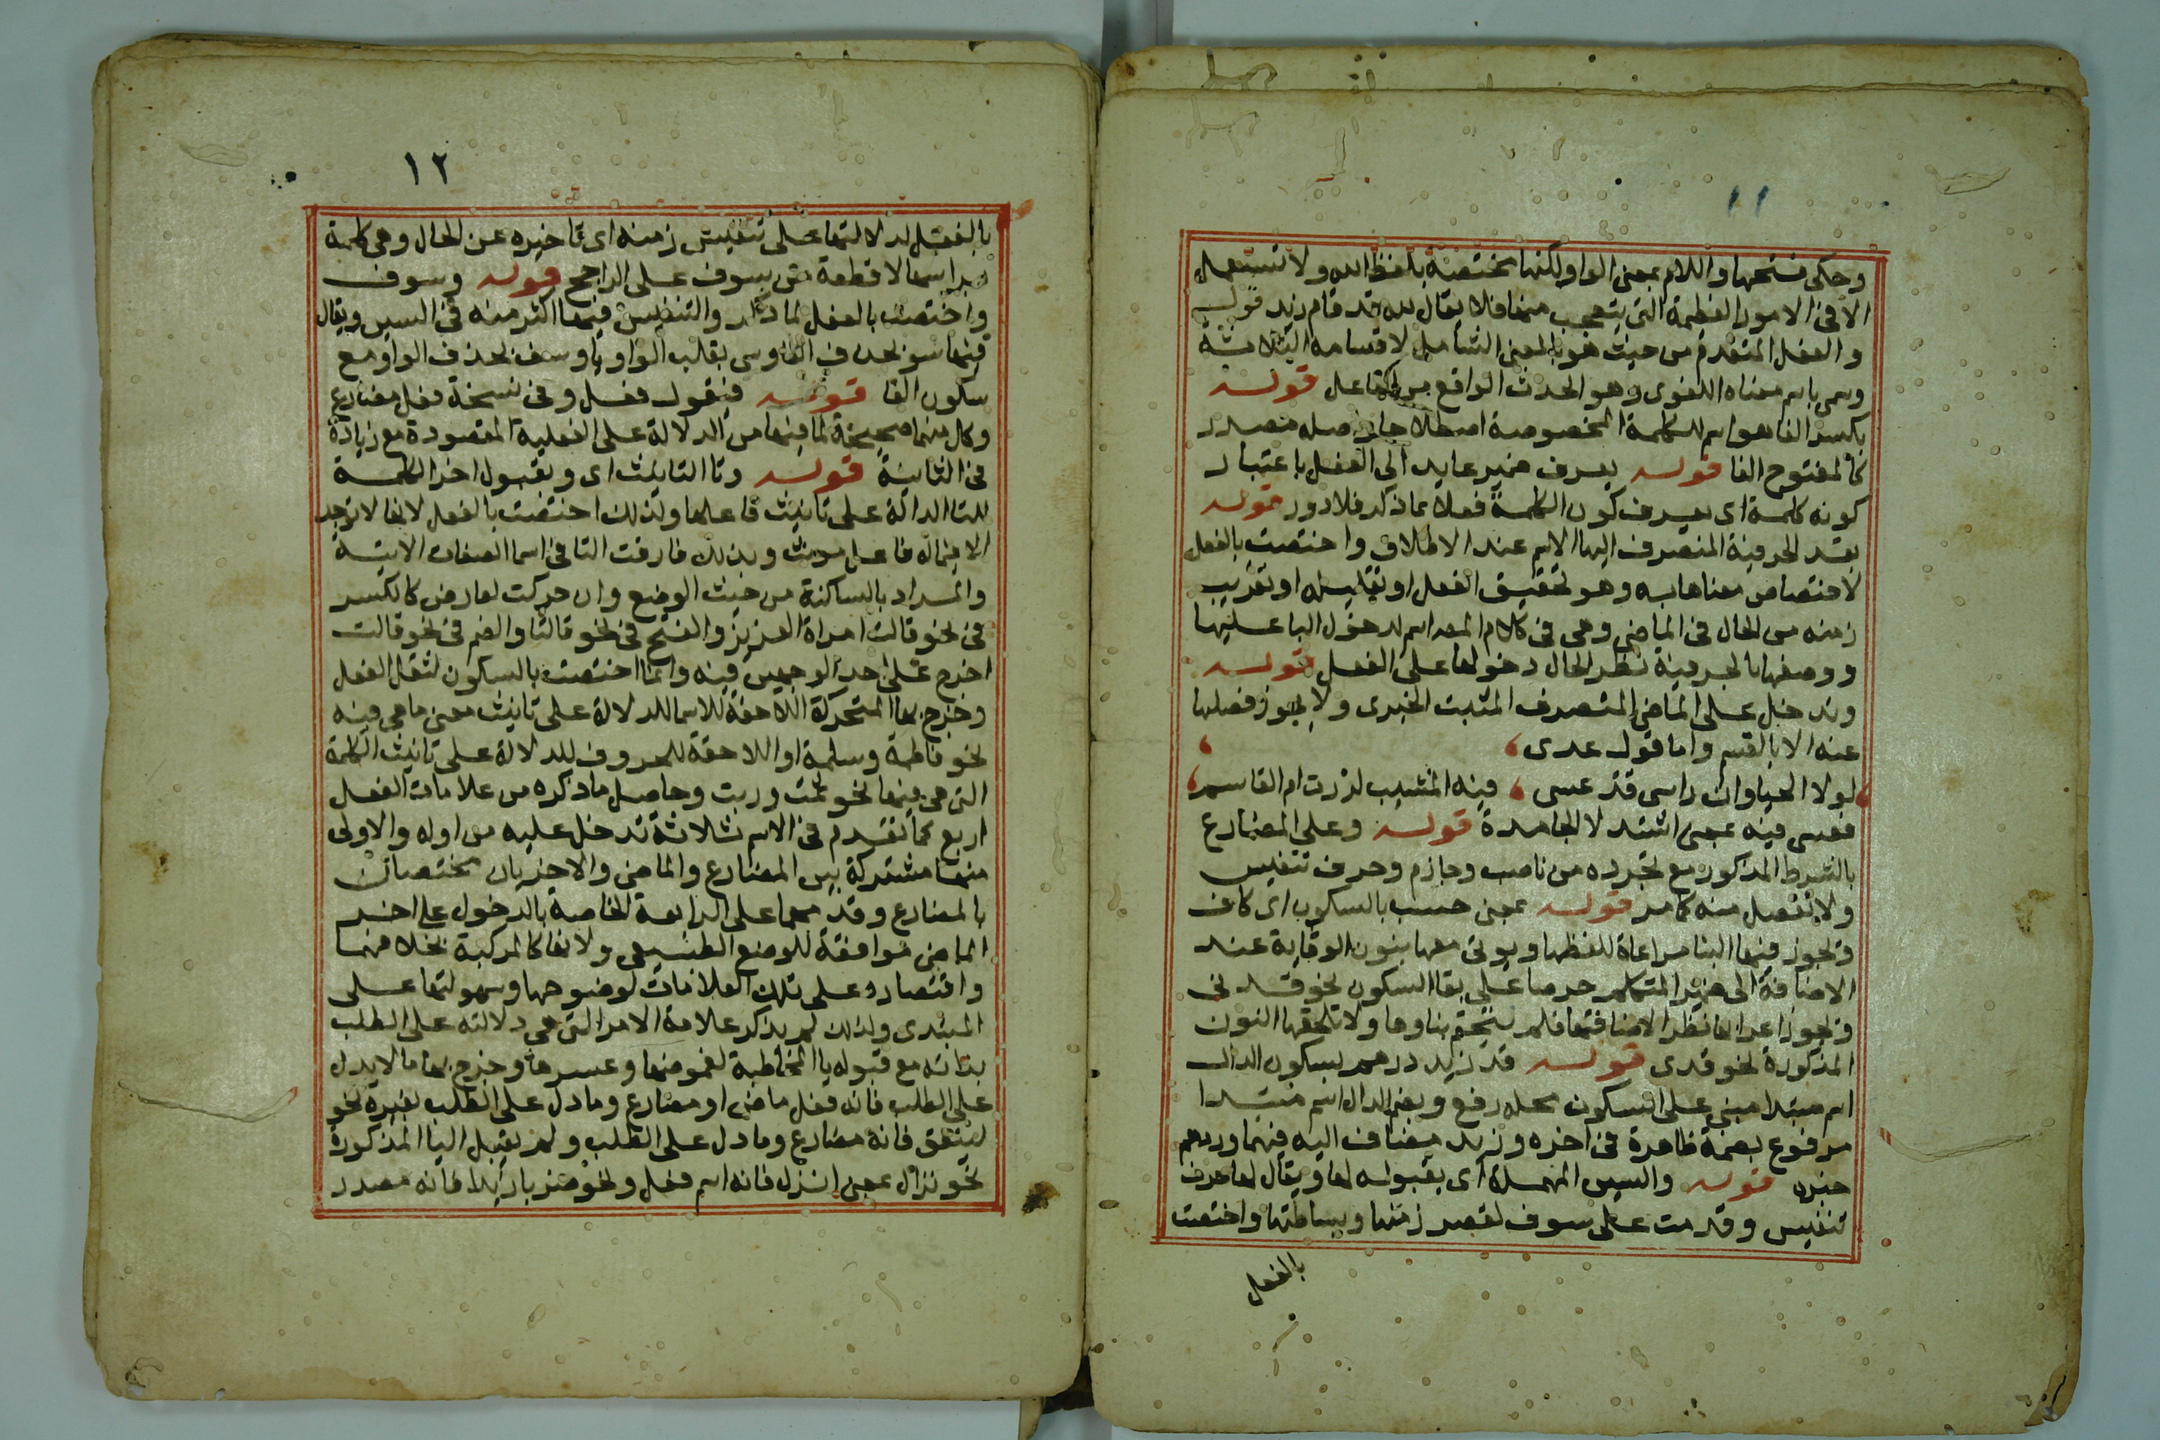 ١١
وحكى فتحها واللام بمعنى الواو لكنها مختصة بلفظ الله ولا تستعمل
الا في الامور العظيمة التي يتعجب منها فلا يقال لله قد قام زيد قوله
والفعل المتقدم من حيث هو بالمعنى الشامل لاقسامه الثلاثة
وسمي باسم معناه اللغوي وهو الحدث الواقع من الفاعل قوله
بكسر الفا هو اسم للكلمة المخصوصة اصطلاحا واصله مصدر
كالمفتوح الفا قوله يعرف ضمير عايد الى الفعل باعتبار
كونه كلمة اي يعرف كون الكلمة فعلا بما ذكر فلا دور قوله
بقد الحرفية المنصرف اليها الاسم عند الاطلاق واختصت بالفعل
لاختصاص معناها به وهو تحقيق الفعل او تقليله او تقريب
زمنه من الحال في الماضي وهي في كلام المص اسم لدخول البا عليها
ووصفها بالحرفية نظر لحال دخولها على الفعل قوله
وتدخل على الماضي المتصرف المثبت الخبري ولا يجوز فصلها
عنه الا بالقسم واما قول عدي
لولا الحيا وان راسي قد عسى فيه المشيب لزرت ام القاسم
فعسى فيه بمعنى اشتد لا الجامدة قوله وعلى المضارع
بالشرط المذكور مع تجرده من ناصب وجازم وحرف تنفيس
ولا تفصل منه كما مر قوله بمعنى حسب بالسكون اي كاف
ويجوز فيها البنا مراعاة للفظها ويوتى معها بنون الوقاية عند
الاضافة الى ضمير المتكلم حرصا على بقا السكون نحو قدني
ويجوز اعرابها نظر الاضافتها فلم يتحتم بناوها ولا تلحقها النون
المذكورة نحو قدي قوله قد زيد درهم بسكون الدال
اسم مبتدا مبني على السكون محله رفع وبضم الدال اسم مبتدا
مرفوع بضمة ظاهرة في اخره وزيد مضاف اليه فيهما ودرهم
خبره قوله والسين المهملة اي بقبوله لها ويقال لها حرف
تنفيس وقدمت على سوف لقصر زمنها وبساطتها واختصت
بالفعل
١٢
بالفعل لدلالتها على تنفيس زمنه اي تاخيره عن الحال وهي كلمة
براسها لا قطعة من سوف على الراجح قوله وسوف
واختصت بالفعل لما ذكر والتنفيس فيها اكثر منه في السين ويقال
فيها سو بحذف الفا وسي بقلب الواو يا وسف بحذف الواو مع
سكون الفا قوله فيقول فعل وفي نسخة فعل مضارع
وكل منهما صحيحة لما فيهما من الدلالة على الفعلية المقصودة مع زيادة
في الثانية قوله وتا التانيث اي وبقبول اخر الكلمة
للتا الدالة على تانيث فاعلها ولذلك اختصت بالفعل لانها لا توجد
الا فيما له فاعل مونث وبذلك فارقت التا في اسما الصفات الاتية
والمراد بالساكنة من حيث الوضع وان حركت لعارض كالكسر
في نحو قالت امراة العزيز والفتح في نحو قالتا والضم في نحو قالت
اخرج على احد الوجهين فيه وانما اختصت بالسكون لثقل الفعل
وخرج بها المتحركة اللاحقة للاسما للدلالة على تانيث معنى ما هي فيه
نحو فاطمة وسلمة او اللاحقة للحروف للدلالة على تانيث الكلمة
التي هي فيها نحو ثمت وربت وحاصل ما ذكره من علامات الفعل
اربع كما تقدم في الاسم ثلاثة تدخل عليه من اوله والاولى
منها مشتركة بين المضارع والماضي والاخريان مختصان
بالمضارع وقدمهما على الرابعة الخاصة بالدخول على اخر
الماضي موافقة للوضع الطبيعي ولانها كالمركبة بخلافهما
واقتصاره على تلك العلامات لوضوحها وسهولتها على
المبتدي ولذلك لم يذكر علامة الامر التي هي دلالته على الطلب
بذاته مع قبوله يا المخاطبة لغموضها وعسرها وخرج بها ما لا يدل
على الطلب فانه فعل ماضي او مضارع وما دل على الطلب بغيره نحو
لينفق فانه مضارع وما دل على الطلب ولم يقبل اليا المذكورة
نحو نزال بمعنى انزل فانه اسم فعل ونحو ضربا زيدا فانه مصدر